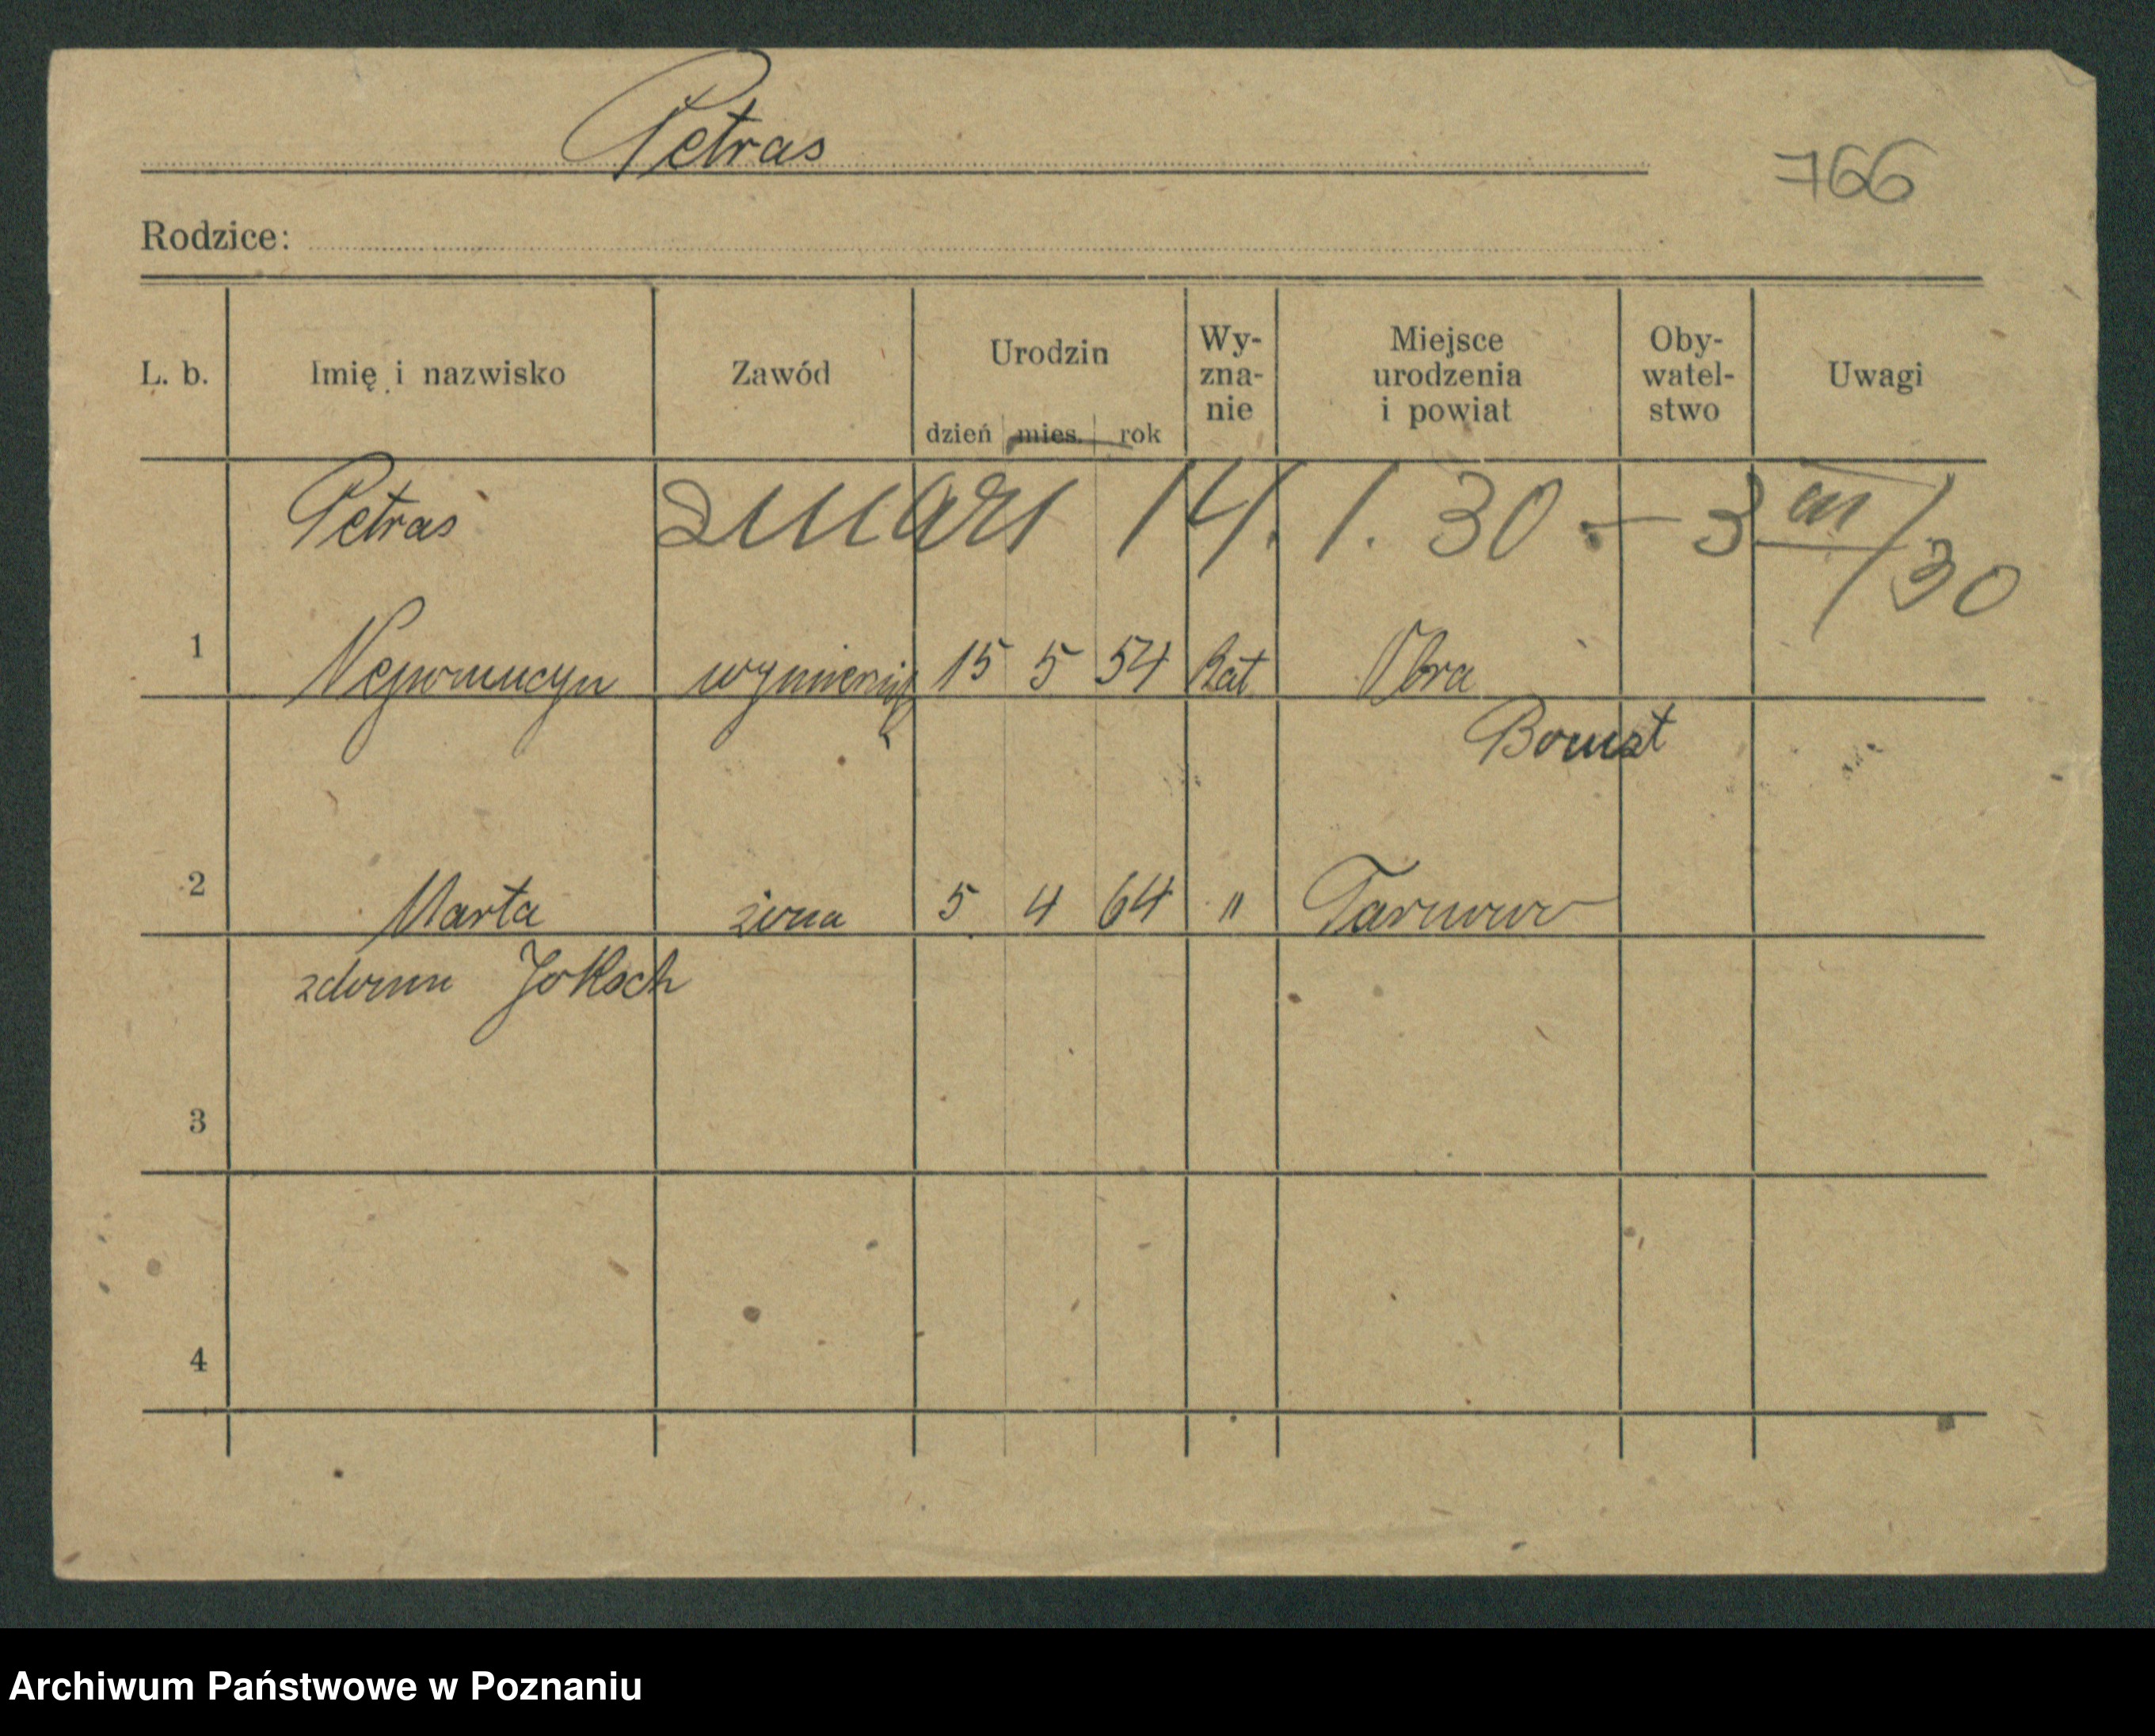 Petras
766
Rodzice:
L. b. Imię i nazwisko Zawód Urodzin Wy- Miejsce Oby- Uwagi
zna- urodzenia watel-
nie i powiat stwo
dzień mies. rok
Petras zmarł 14. 1. 30 - 3 m/30
1 Nepomucyn 15 5 54 kat Obra
Bomst
2 Marta żona 5 4 64 " Tarnowo
zdomu Joksch
3
4
Archiwum Państwowe w Poznaniu